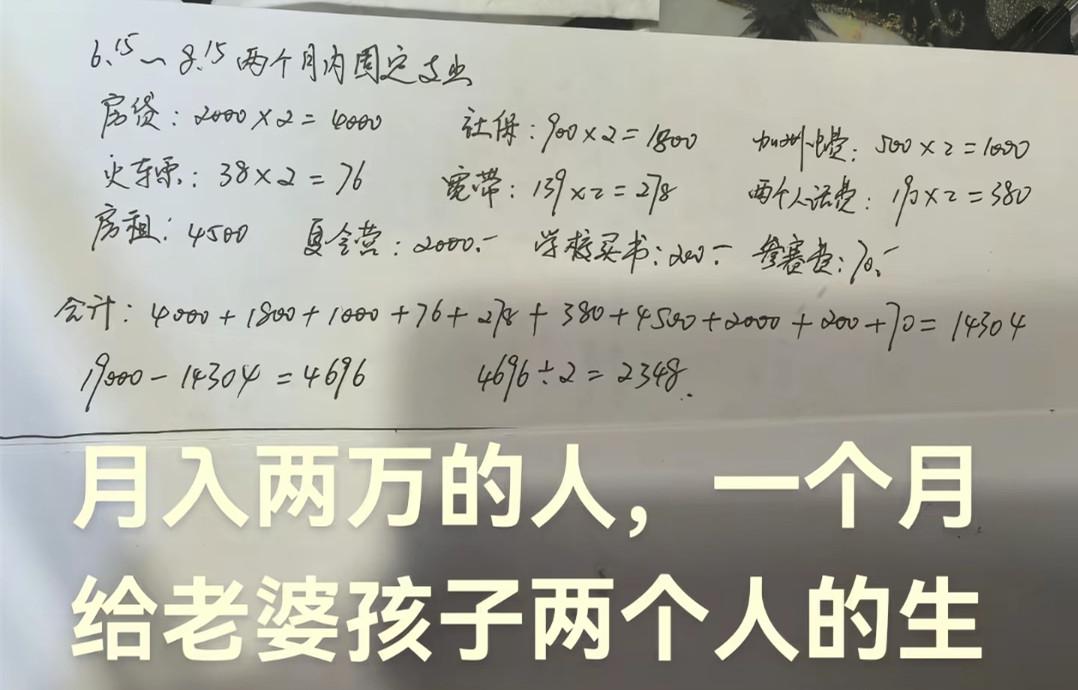 6.15～8.15 两个月内固定支出
房贷：2000×2=4000 社保：900×2=1800 加油费：500×2=1000
火车票：38×2=76 宽带：139×2=278 两个人话费：190×2=380
房租：4500 夏令营：2000.- 学校买书：200.- 参赛费：70.-
合计：4000+1800+1000+76+278+380+4500+2000+200+70=14304
19000-14304=4696 4696÷2=2348.
月入两万的人，一个月
给老婆孩子两个人的生